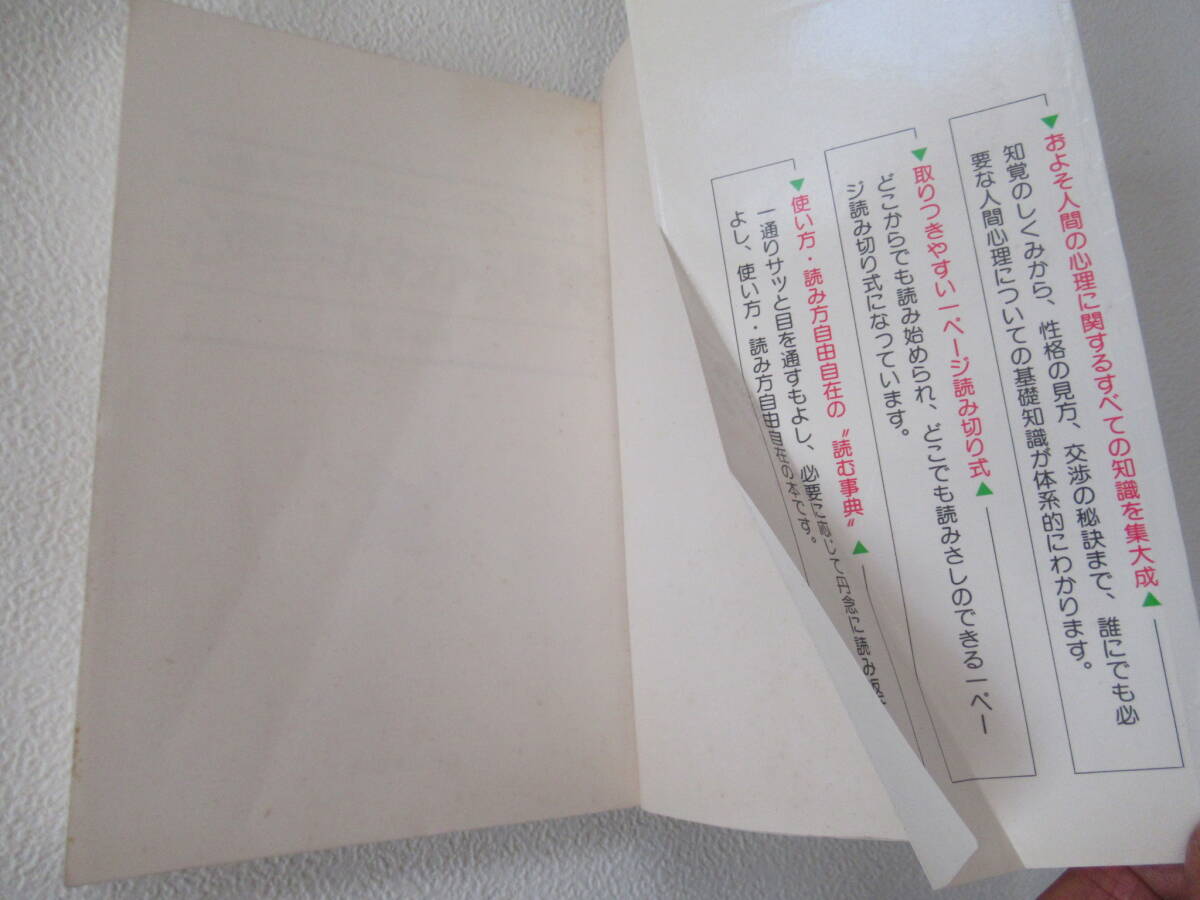 ▼およそ人間の心理に関するすべての知識を集大成▲
知覚のしくみから、性格の見方、交渉の秘訣まで、誰にでも必
要な人間心理についての基礎知識が体系的にわかります。
▼取りつきやすい一ページ読み切り式▲
どこからでも読み始められ、どこでも読みさしのできる一ペー
ジ読み切り式になっています。
▼使い方・読み方自由自在の〝読む事典〟▲
一通りサッと目を通すもよし、必要に応じて丹念に読み返す
よし、使い方・読み方自由自在の本です。